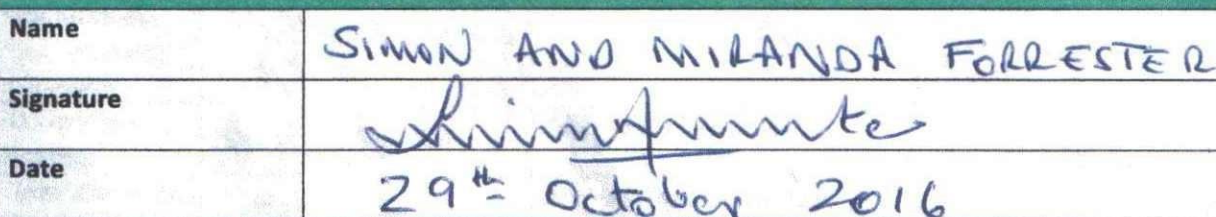 Name SIMON AND MIRANDA FORRESTER
Signature
Date 29th October 2016